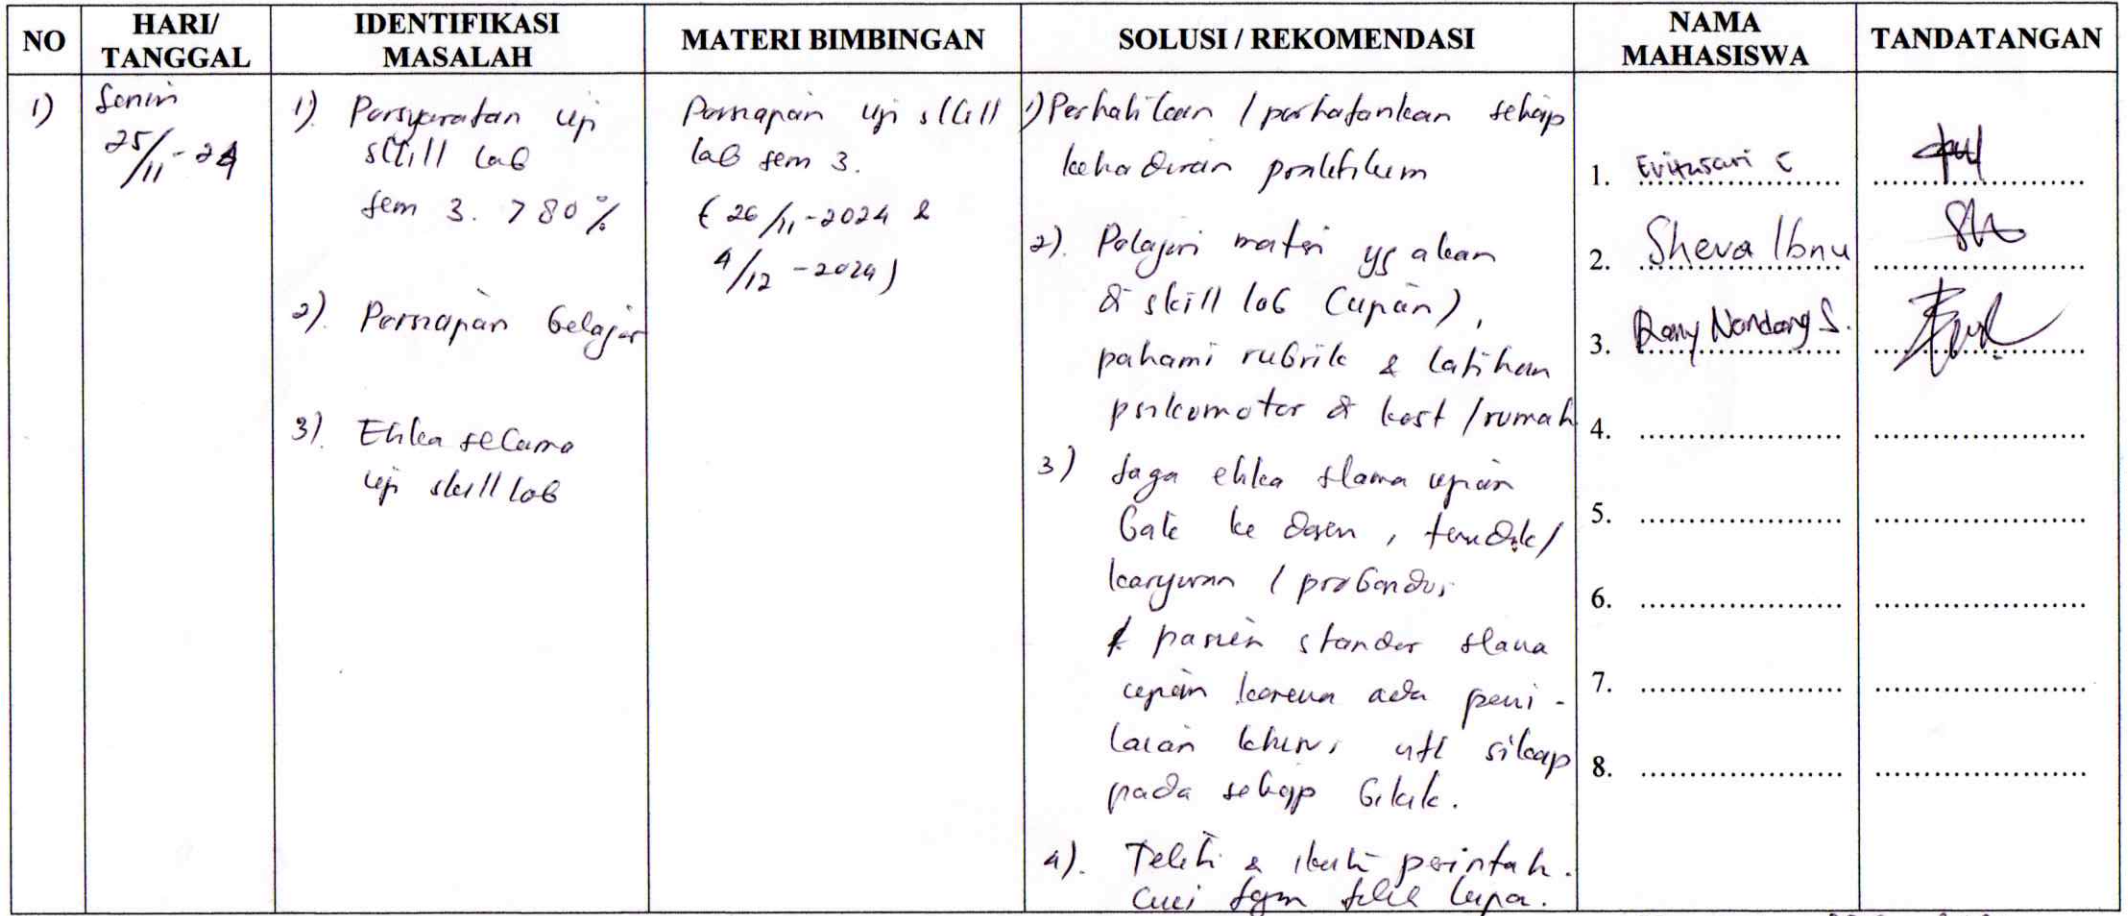 NO
HARI/
TANGGAL
IDENTIFIKASI
MASALAH
MATERI BIMBINGAN
SOLUSI / REKOMENDASI
NAMA
MAHASISWA
TANDATANGAN
1)
Senin
25/11-24
1). Persyaratan uji
skill lab
sem 3. >80%
2). Persiapan belajar
3). Etika selama
uji skill lab
Persiapan uji skill
lab sem 3.
(26/11-2024 &
4/12-2024)
1) Perhatikan / perhatankan setiap
kehadiran praktikum
2). Pelajari materi yg akan
di skill lab (ujian),
pahami rubrik & latihan
psikomotor di kost / rumah
3) Jaga etika slama ujian
baik ke dosen, tendik/
karyawan / probandus
pasien standar slama
ujian karena ada peni-
laian khusus utk sikap
pada setiap
4). Teliti & ikuti perintah.
Cuci tgn tidk lupa.
1. Evitasari
2. Sheva Ibnu
3. Rany Nandang S.
4.
5.
6.
7.
8.